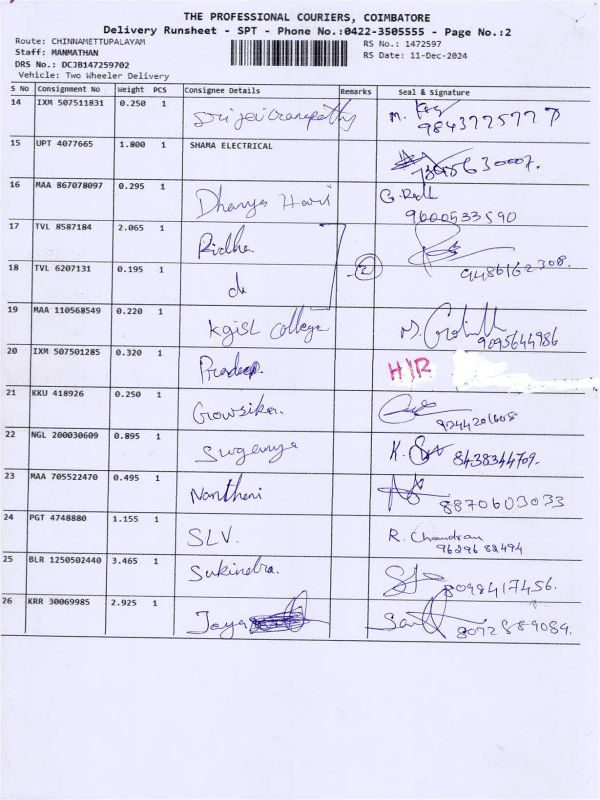 THE PROFESSIONAL COURIERS, COIMBATORE
Delivery Runsheet - SPT - Phone No.:0422-3505555 - Page No.:2
Route: CHINNAMETTUPALAYAM
Staff: MANMATHAN
DRS No.: DCJB147259702
Vehicle: Two Wheeler Delivery
RS No.: 1472597
RS Date: 11-Dec-2024
S No Consignment No Weight PCS Consignee Details Remarks Seal & Signature
14 IXM 507511831 0.250 1 M.
15 UPT 4077665 1.800 1 SHAMA ELECTRICAL
16 MAA 867078097 0.295 1 Dhanya Hari G.
9600533590
17 TVL 8587184 2.065 1 Ridha
18 TVL 6207131 0.195 1 do 2 9486162308.
19 MAA 110568549 0.220 1 KGISL College 9095644986
20 IXM 507501285 0.320 1 Pradeep. H/R
21 KKU 418926 0.250 1 Gowsika. 9244201605
22 NGL 200030609 0.895 1 Sugenya K. 8438344709.
23 MAA 705522470 0.495 1 Nantheni 8870603033
24 PGT 4748880 1.155 1 SLV. R. Chandran
96296 82494
25 BLR 1250502440 3.465 1 Sukindra. 8098417456.
26 KRR 30069985 2.925 1 Jaya 8072889084.